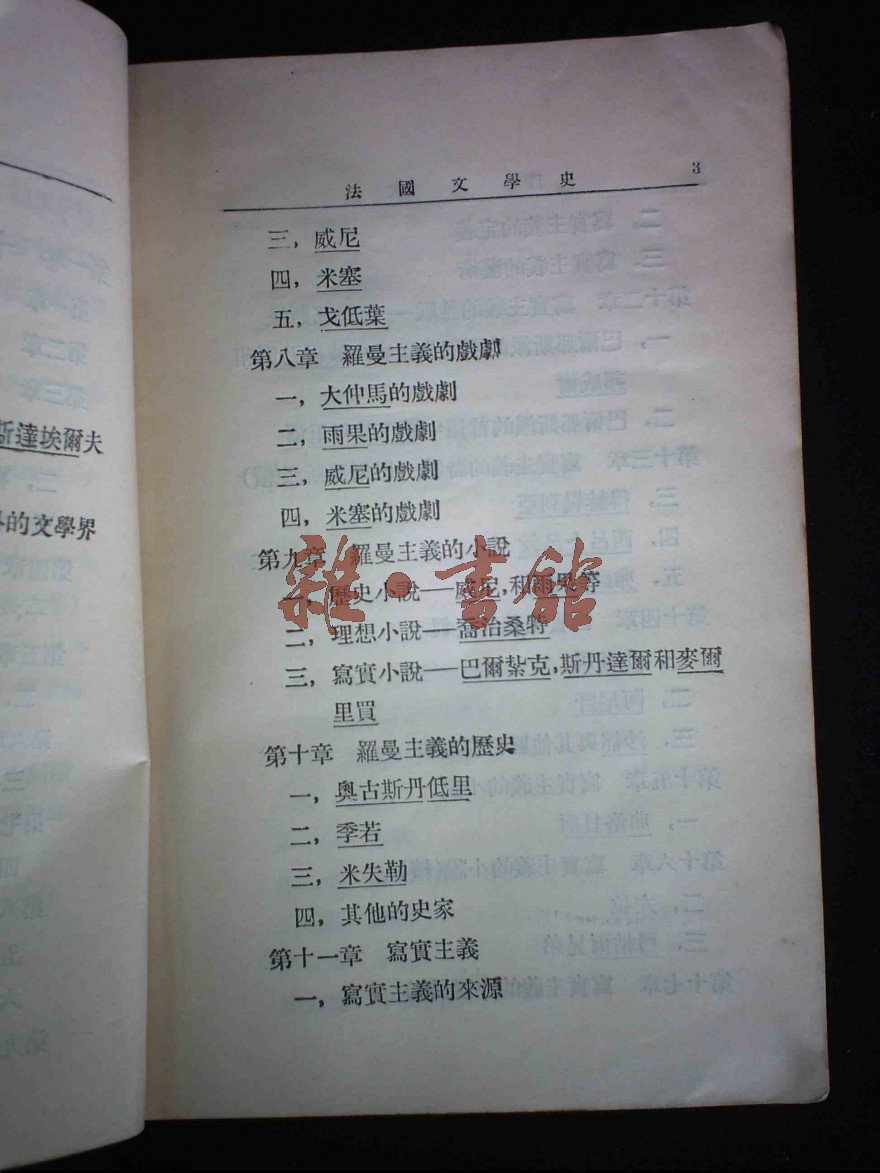 法國文學史 3
三，威尼
四，米塞
五，戈低葉
第八章 羅曼主義的戲劇
一，大仲馬的戲劇
二，雨果的戲劇
三，威尼的戲劇
四，米塞的戲劇
第九章 羅曼主義的小說
一，歷史小說——威尼，和雨果等
二，理想小說——喬治桑特
三，寫實小說——巴爾紮克，斯丹達爾和麥爾
里買
第十章 羅曼主義的歷史
一，奧古斯丹低里
二，季若
三，米失勒
四，其他的史家
第十一章 寫實主義
一，寫實主義的來源
斯達埃爾夫
的文學界
雜·書館